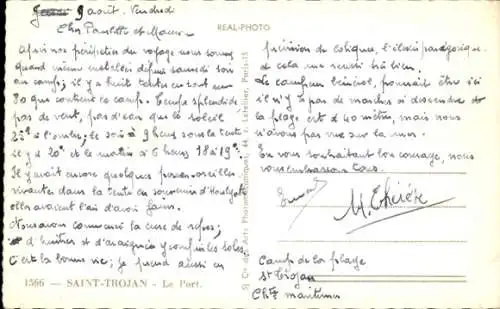 9 août. Vendredi
Cher Paulette et Maurice
Après nos péripéties du voyage nous sommes
quand même installés depuis samedi soir
au camp; il y a huit tentes en tout sur
80 que contient le camp. Temps splendide,
pas de vent, pas d'eau que le soleil
25° à l'ombre; le soir à 9 heures sous la tente
il y a 20° et le matin à 6 heures 18 à 19°.
Il y avait encore quelques perce-oreilles
vivantes dans la tente en souvenir d'Houlgate
elles avaient l'air d'avoir faim.
Nous avons commencé la cure de repos;
d'huîtres et d'araignées y compris les soles.
C'est la bonne vie; je prend aussi en
1566 - SAINT-TROJAN - Le Port.
REAL-PHOTO
prévision de coliques, l'élixir parégorique
de cela me réussit très bien.
Le camp en général, pourrait être ici
il n'y a pas de marches à descendre
la plage est à 40 mètres, mais nous
n'avons pas vue sur la mer.
En vous souhaitant bon courage, nous
vous embrassons tous.
Camp de la plage
St Trojan
Chte maritime